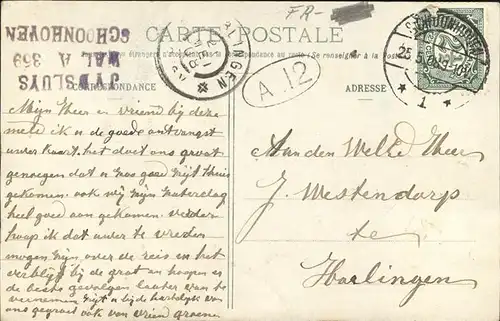 FR-
CARTE POSTALE
Tous les pays étrangers n'acceptent pas la correspondance au recto (Se renseigner à la Poste)
CORRESPONDANCE
ADRESSE
JYDSLUYS
WAL A 359
SCHOONHOVEN
HARLINGEN
SCHOONHOVEN
1
A 12
Mijn Heer en vriend bij deze
mele ik u de goede ontvangst
uwer kaart. het doet ons groot
genoegen dat u zoo goed zijt thuis
gekomen. ook wij zijn zaterdag
heel goed aan gekomen. verder
hoop ik dat uwer te vreden
mogen zijn over de reis en het
verblijf bij de groot en hoopen er
de beste gevolgen later van te
vernemen zijt u bij de hartelijk van
ons gegroet ook van vriend groene
Aan den Welèd Heer
J. Westendorp
te
Harlingen